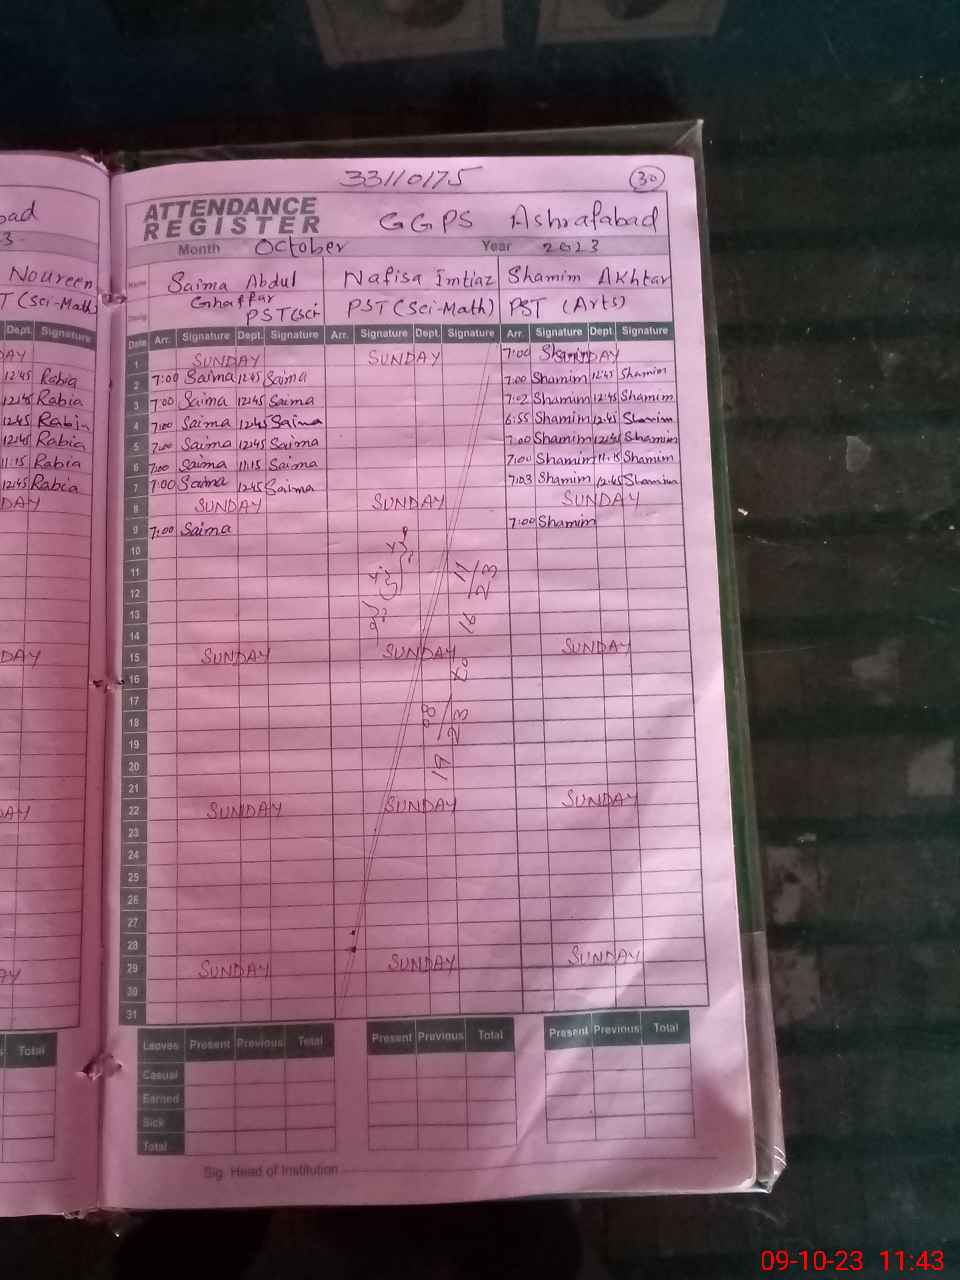 33110175 30
ATTENDANCE
REGISTER GGPS Ashrafabad
Month October Year 2023
Name Saima Abdul Nafisa Imtiaz Shamim Akhtar
Ghaffar
PST(Sci PST(Sci-Math) PST (Arts)
Noureen
T(Sci-Math)
Dept. Signature
Date Arr. Signature Dept. Signature Arr. Signature Dept. Signature Arr. Signature Dept. Signature
DAY 1 SUNDAY SUNDAY 7:00 SUNDAY
12:45 Rabia 2 7:00 Saima 12:45 Saima 7:00 Shamim 12:45 Shamim
12:45 Rabia 3 7:00 Saima 12:45 Saima 7:02 Shamim 12:45 Shamim
12:45 Rabia 4 7:00 Saima 12:45 Saima 6:55 Shamim 12:45 Shamim
12:45 Rabia 5 7:00 Saima 12:45 Saima 7:00 Shamim 12:45 Shamim
11:15 Rabia 6 7:00 Saima 11:15 Saima 7:00 Shamim 11:15 Shamim
12:45 Rabia 7 7:00 Saima 12:45 Saima 7:03 Shamim 12:45 Shamim
DAY 8 SUNDAY SUNDAY SUNDAY
9 7:00 Saima 7:00 Shamim
10
11
12
13
14
DAY 15 SUNDAY SUNDAY SUNDAY
16
17
18
19
20
21
DAY 22 SUNDAY SUNDAY SUNDAY
23
24
25
26
27
28
29 SUNDAY SUNDAY SUNDAY
30
31
Total Leaves Present Previous Total Present Previous Total Present Previous Total
Casual
Earned
Sick
Total
Sig. Head of Institution
09-10-23 11:43